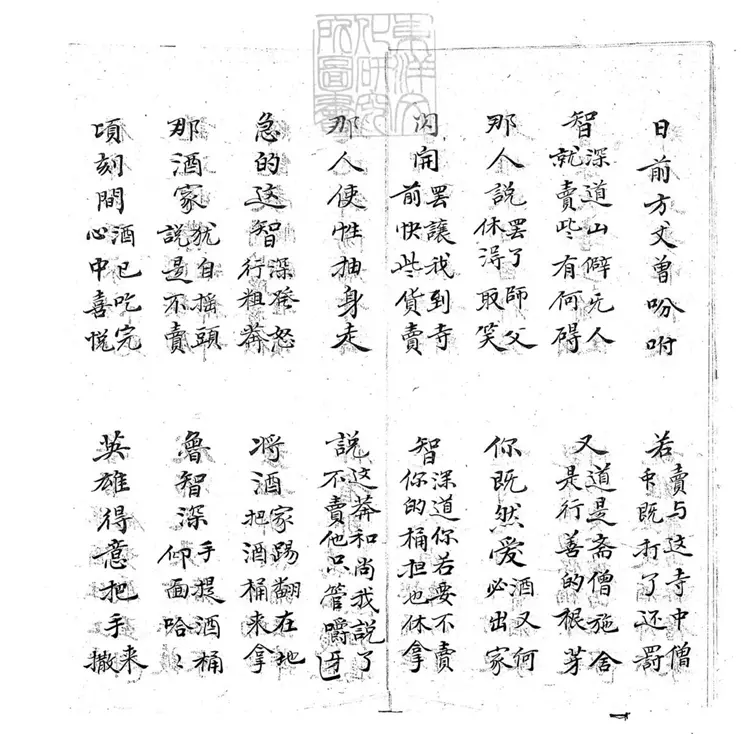 東洋文化研究所圖書
日前方丈曾吩咐
若賣与这寺中僧既打了还罰
智深道山僻无人就賣些有何碍
又道是斋僧施舍是行善的根芽
那人說罢了師父休淂取笑
你既然爱酒又何必出家
閃開罢讓我到寺前快些貨賣
智深道你若要不賣你的桶担也休拿
那人使牲抽身走
說这莽和尚我說了不賣他只管嚼牙
急的这智深發怒行粗莽
将酒家踢翻在地把酒桶来拿
那酒家犹自摇頭說是不賣
魯智深手提酒桶仰面哈〻
頃刻間酒已吃完心中喜悦
英雄得意把手来撒